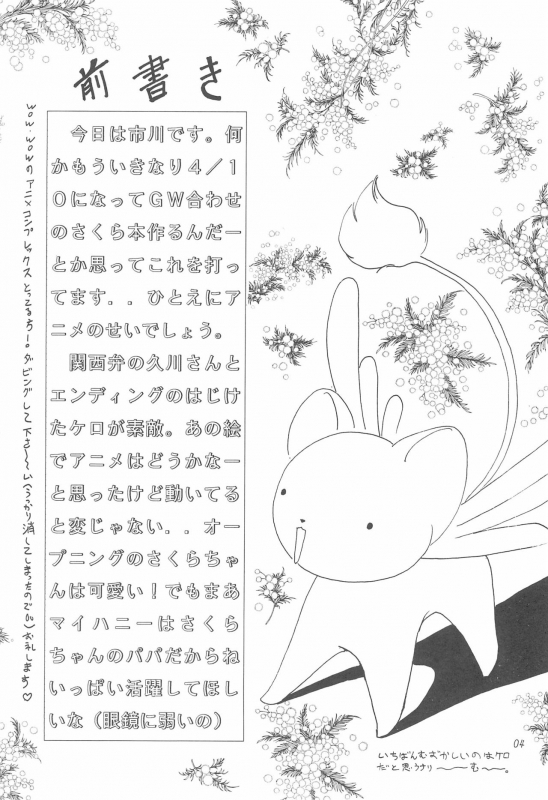 前書き
今日は市川です。何
かもういきなり4/1
0になってGW合わせ
のさくら本作るんだー
とか思ってこれを打っ
てます．．ひとえにア
ニメのせいでしょう。
関西弁の久川さんと
エンディングのはじけ
たケロが素敵。あの絵
でアニメはどうかなー
と思ったけど動いてる
と変じゃない．．オー
プニングのさくらちゃ
んは可愛い！でもまあ
マイハニーはさくら
ちゃんのパパだからね
いっぱい活躍してほし
いな（眼鏡に弱いの）
wow.wowのアニメコンプレックスとってる方ー。ダビングして下さ〜〜い(うっかり消してしまったので(^^;)お礼しまち♡
いちばんむずかしいのはケロ
だと思うナリ〜〜む〜。
04